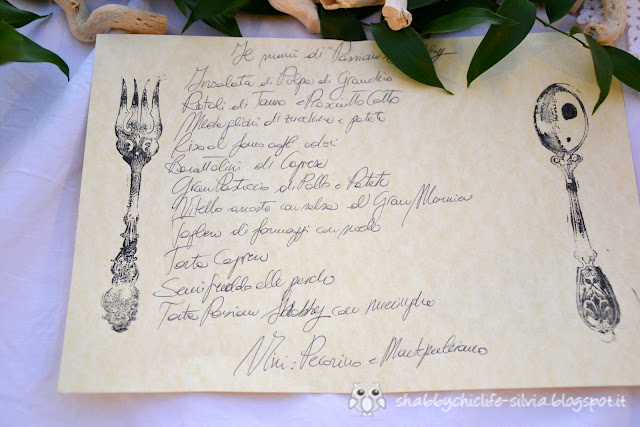 Il menù di Passione Shabby
Insalata di Polpa di Granchio
Rotoli di Tonno e Prosciutto Cotto
Medaglioni di zucchine e patate
Riso al forno agli odori
Barattolini di Caprese
Gran Pasticcio di Pollo e Patate
Vitello arrosto con salsa al Gran Marnier
Tagliere di formaggi con miele
Torta Caprese
Semifreddo alle pesche
Torta Passione Shabby con meringhe
Vini: Pecorino e Montepulciano
shabbychiclife-silvia.blogspot.it